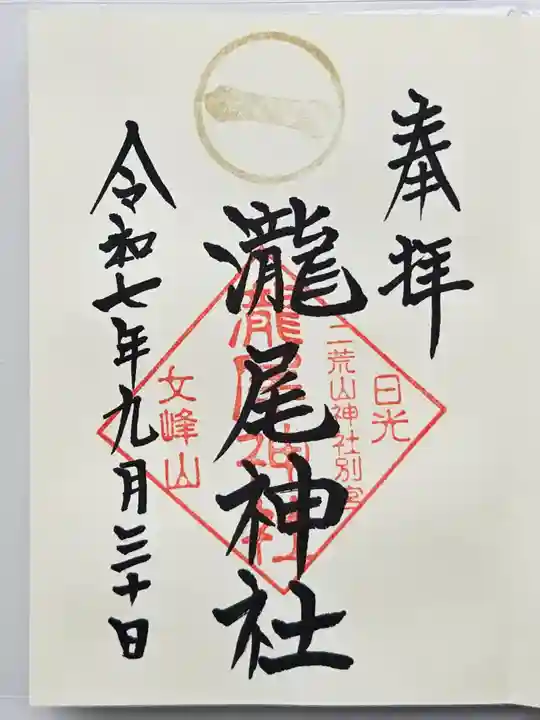 奉拝
日光
二荒山神社別宮
瀧尾神社
瀧尾神社
女峰山
令和七年九月三十日
一